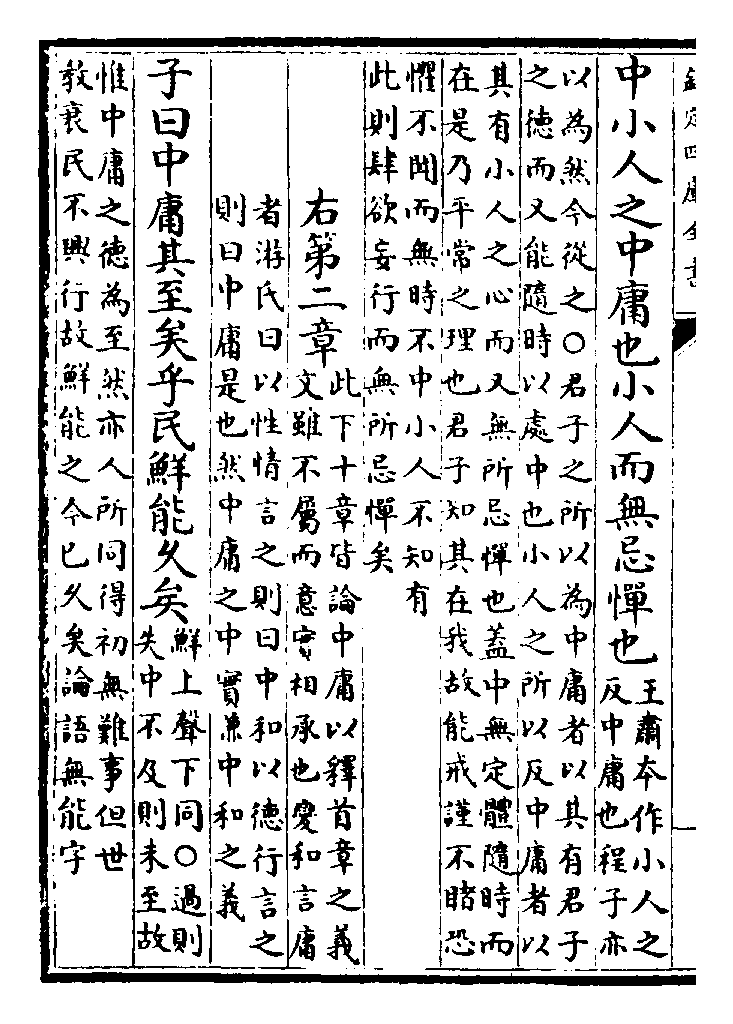 欽定四庫全書
中小人之中庸也小人而無忌憚也
王肅本作小人之
反中庸也程子亦
以為然今從之○君子之所以為中庸者以其有君子
之德而又能隨時以處中也小人之所以反中庸者以
其有小人之心而又無所忌憚也蓋中無定體隨時而
在是乃平常之理也君子知其在我故能戒謹不睹恐
懼不聞而無時不中小人不知有
此則肆欲妄行而無所忌憚矣
右第二章
此下十章皆論中庸以釋首章之義
文雖不屬而意實相承也變和言庸
者游氏曰以性情言之則曰中和以德行言之
則曰中庸是也然中庸之中實兼中和之義
子曰中庸其至矣乎民鮮能久矣
鮮上聲下同○過則
失中不及則未至故
惟中庸之德為至然亦人所同得初無難事但世
教衰民不興行故鮮能之今已久矣論語無能字